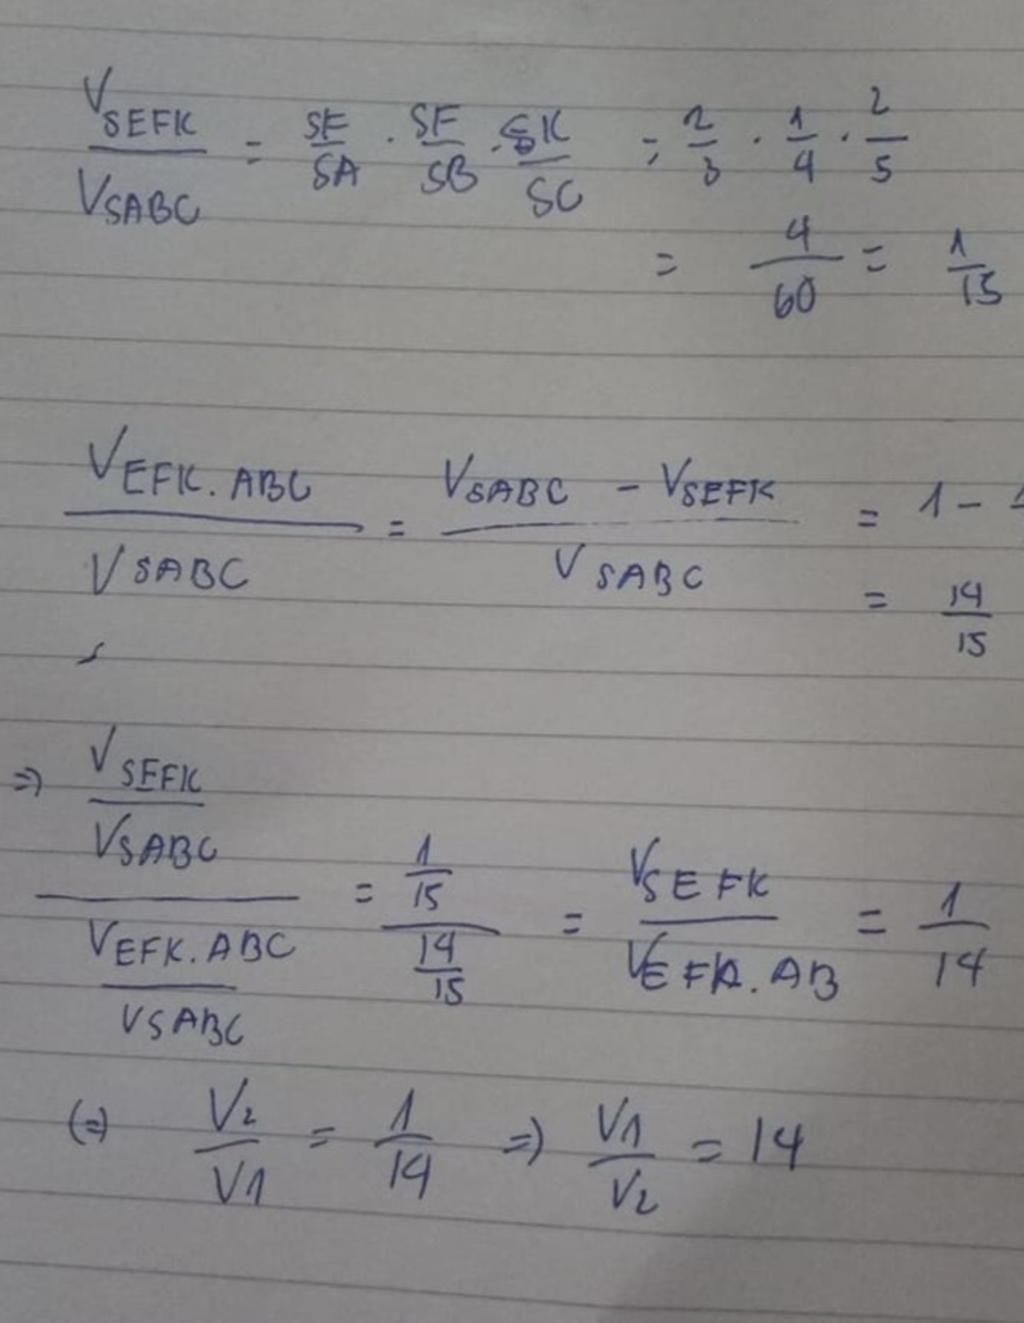 V_SEFK / V_SABC = SE/SA . SF/SB . SK/SC = 2/3 . 1/4 . 2/5
= 4/60 = 1/15
V_EFK.ABC / V_SABC = (V_SABC - V_SEFK) / V_SABC = 1 -
= 14/15
=> (V_SEFK / V_SABC) / (V_EFK.ABC / V_SABC) = (1/15) / (14/15) = V_SEFK / V_EFK.AB = 1/14
(=) V2/V1 = 1/14 => V1/V2 = 14